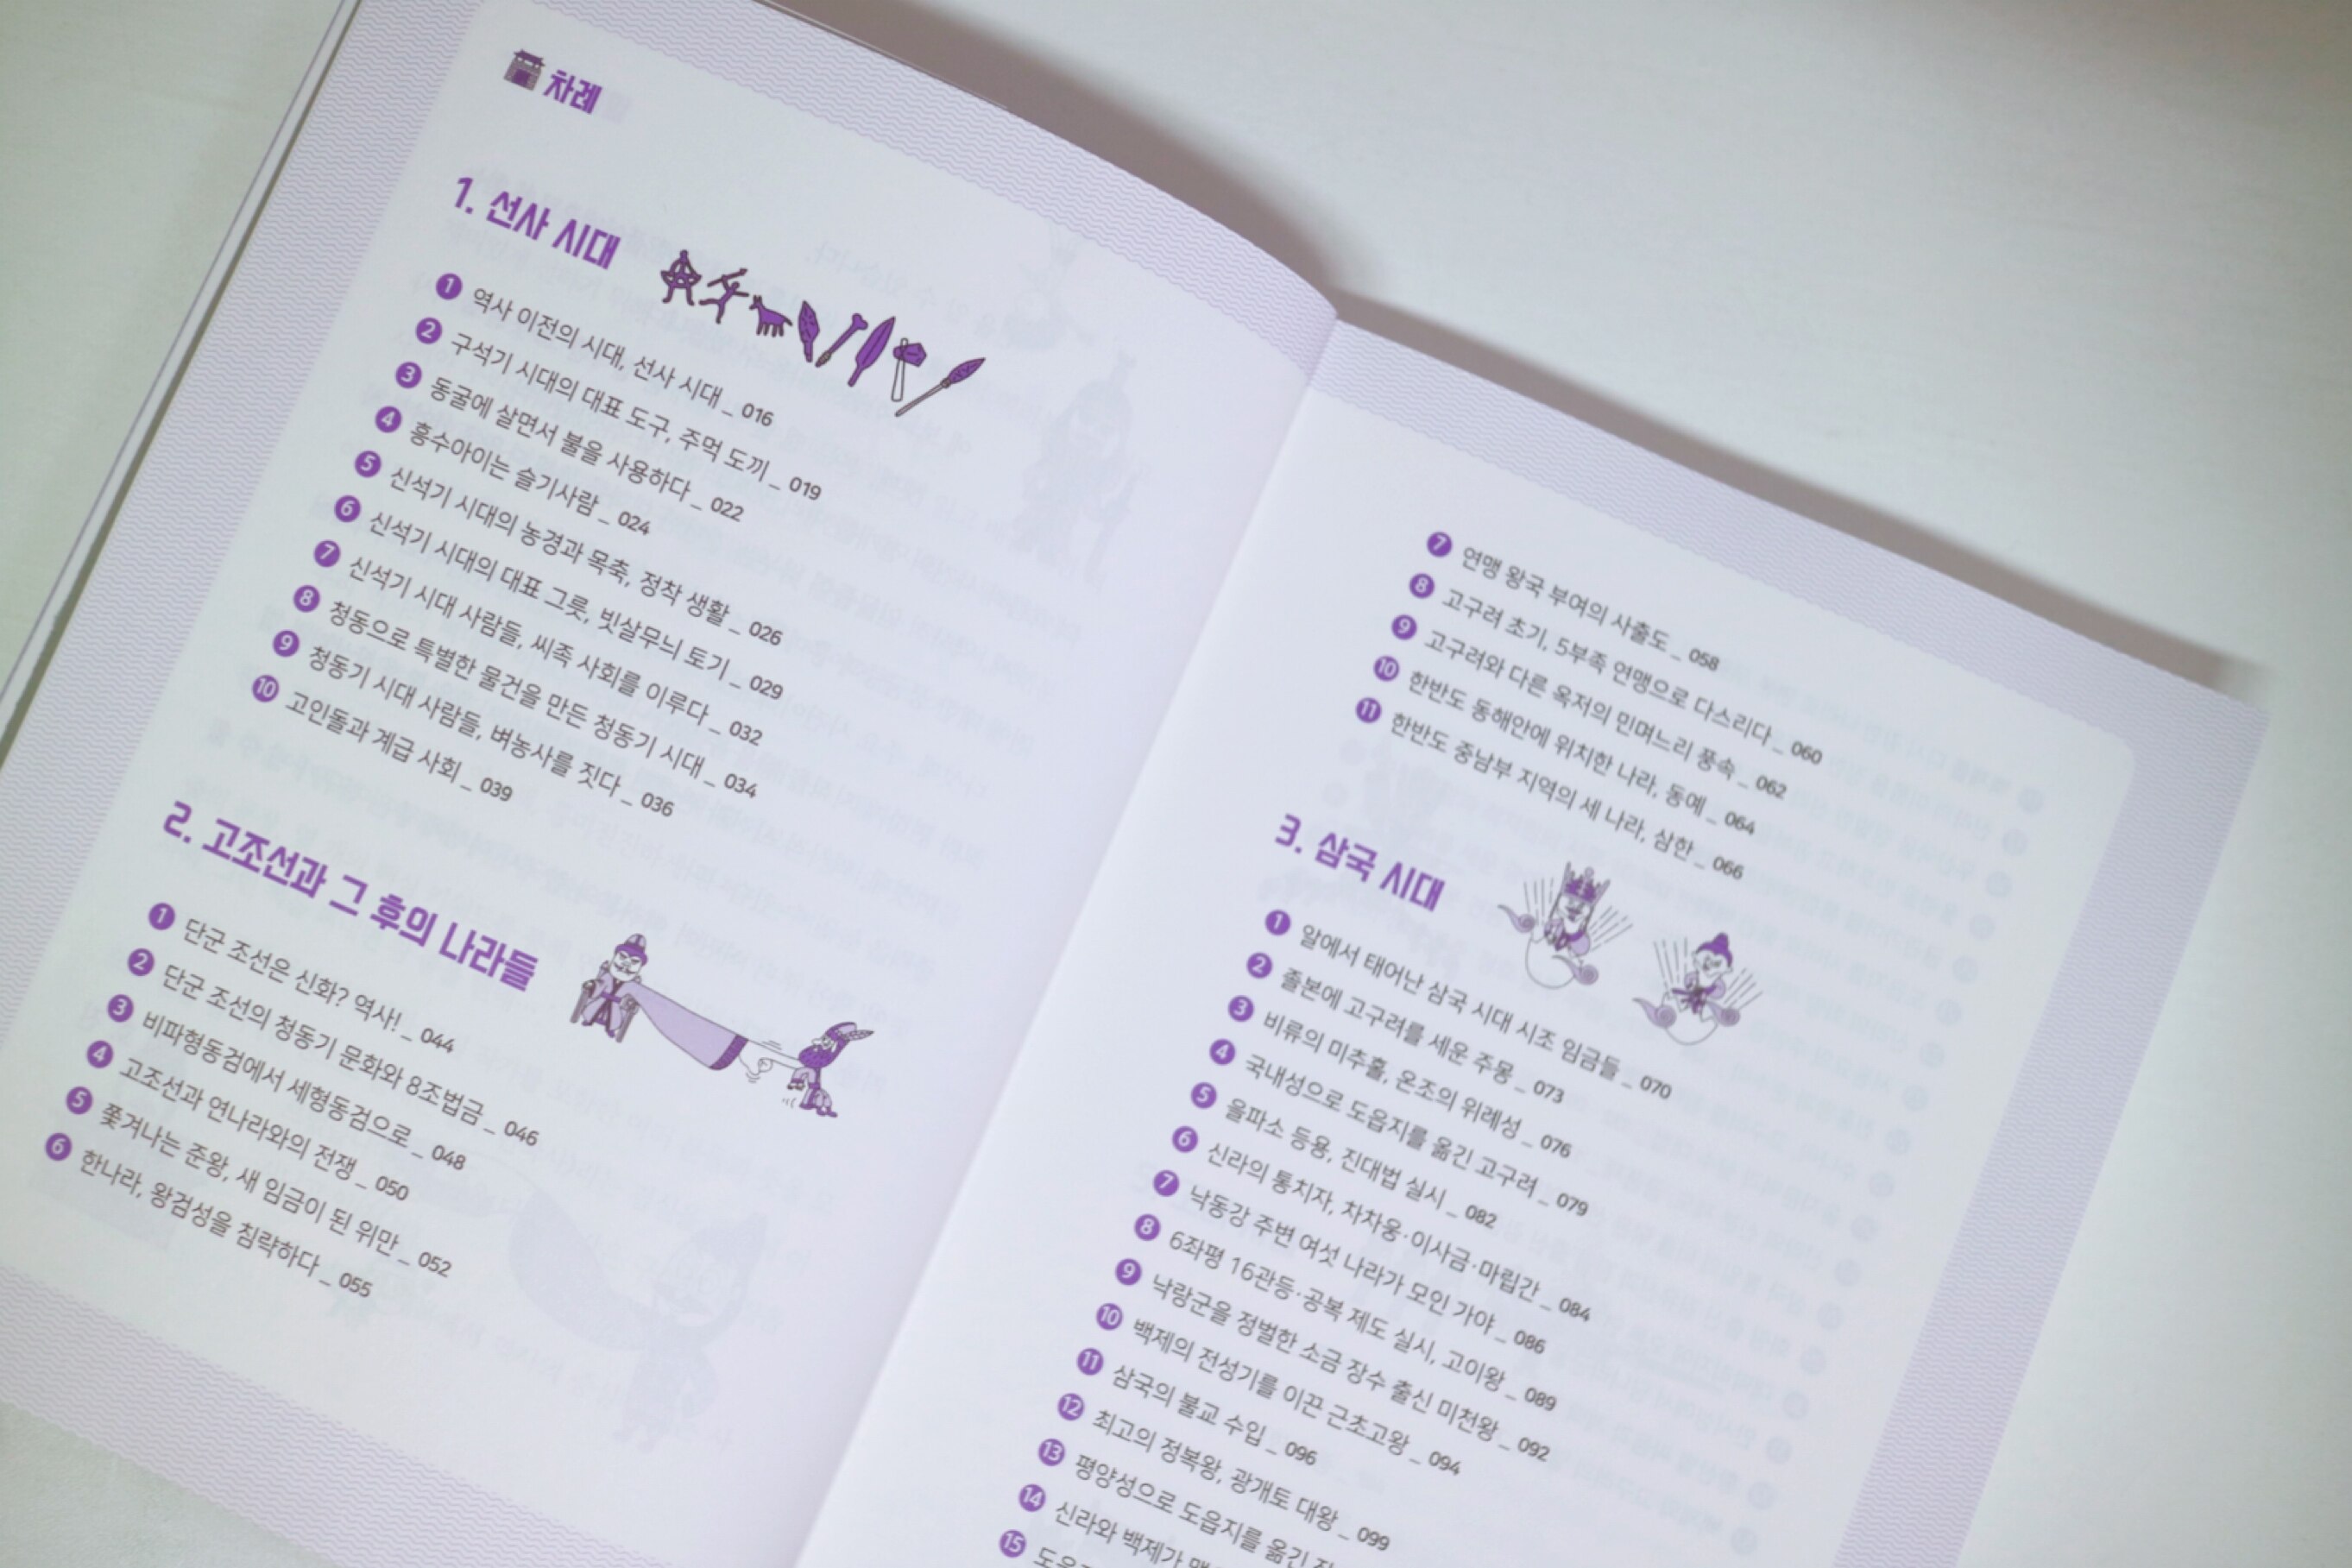 차례
1. 선사 시대
1 역사 이전의 시대, 선사 시대 _ 016
2 구석기 시대의 대표 도구, 주먹 도끼 _ 019
3 동굴에 살면서 불을 사용하다 _ 022
4 흥수아이는 슬기사람 _ 024
5 신석기 시대의 농경과 목축, 정착 생활 _ 026
6 신석기 시대의 대표 그릇, 빗살무늬 토기 _ 029
7 신석기 시대 사람들, 씨족 사회를 이루다 _ 032
8 청동으로 특별한 물건을 만든 청동기 시대 _ 034
9 청동기 시대 사람들, 벼농사를 짓다 _ 036
10 고인돌과 계급 사회 _ 039
2. 고조선과 그 후의 나라들
1 단군 조선은 신화? 역사! _ 044
2 단군 조선의 청동기 문화와 8조법금 _ 046
3 비파형동검에서 세형동검으로 _ 048
4 고조선과 연나라와의 전쟁 _ 050
5 쫓겨나는 준왕, 새 임금이 된 위만 _ 052
6 한나라, 왕검성을 침략하다 _ 055
7 연맹 왕국 부여의 사출도 _ 058
8 고구려 초기, 5부족 연맹으로 다스리다 _ 060
9 고구려와 다른 옥저의 민며느리 풍속 _ 062
10 한반도 동해안에 위치한 나라, 동예 _ 064
11 한반도 중남부 지역의 세 나라, 삼한 _ 066
3. 삼국 시대
1 알에서 태어난 삼국 시대 시조 임금들 _ 070
2 졸본에 고구려를 세운 주몽 _ 073
3 비류의 미추홀, 온조의 위례성 _ 076
4 국내성으로 도읍지를 옮긴 고구려 _ 079
5 을파소 등용, 진대법 실시 _ 082
6 신라의 통치자, 차차웅·이사금·마립간 _ 084
7 낙동강 주변 여섯 나라가 모인 가야 _ 086
8 6좌평 16관등·공복 제도 실시, 고이왕 _ 089
9 낙랑군을 정벌한 소금 장수 출신 미천왕 _ 092
10 백제의 전성기를 이끈 근초고왕 _ 094
11 삼국의 불교 수입 _ 096
12 최고의 정복왕, 광개토 대왕 _ 099
13 평양성으로 도읍지를 옮긴
14 신라와 백제가
15